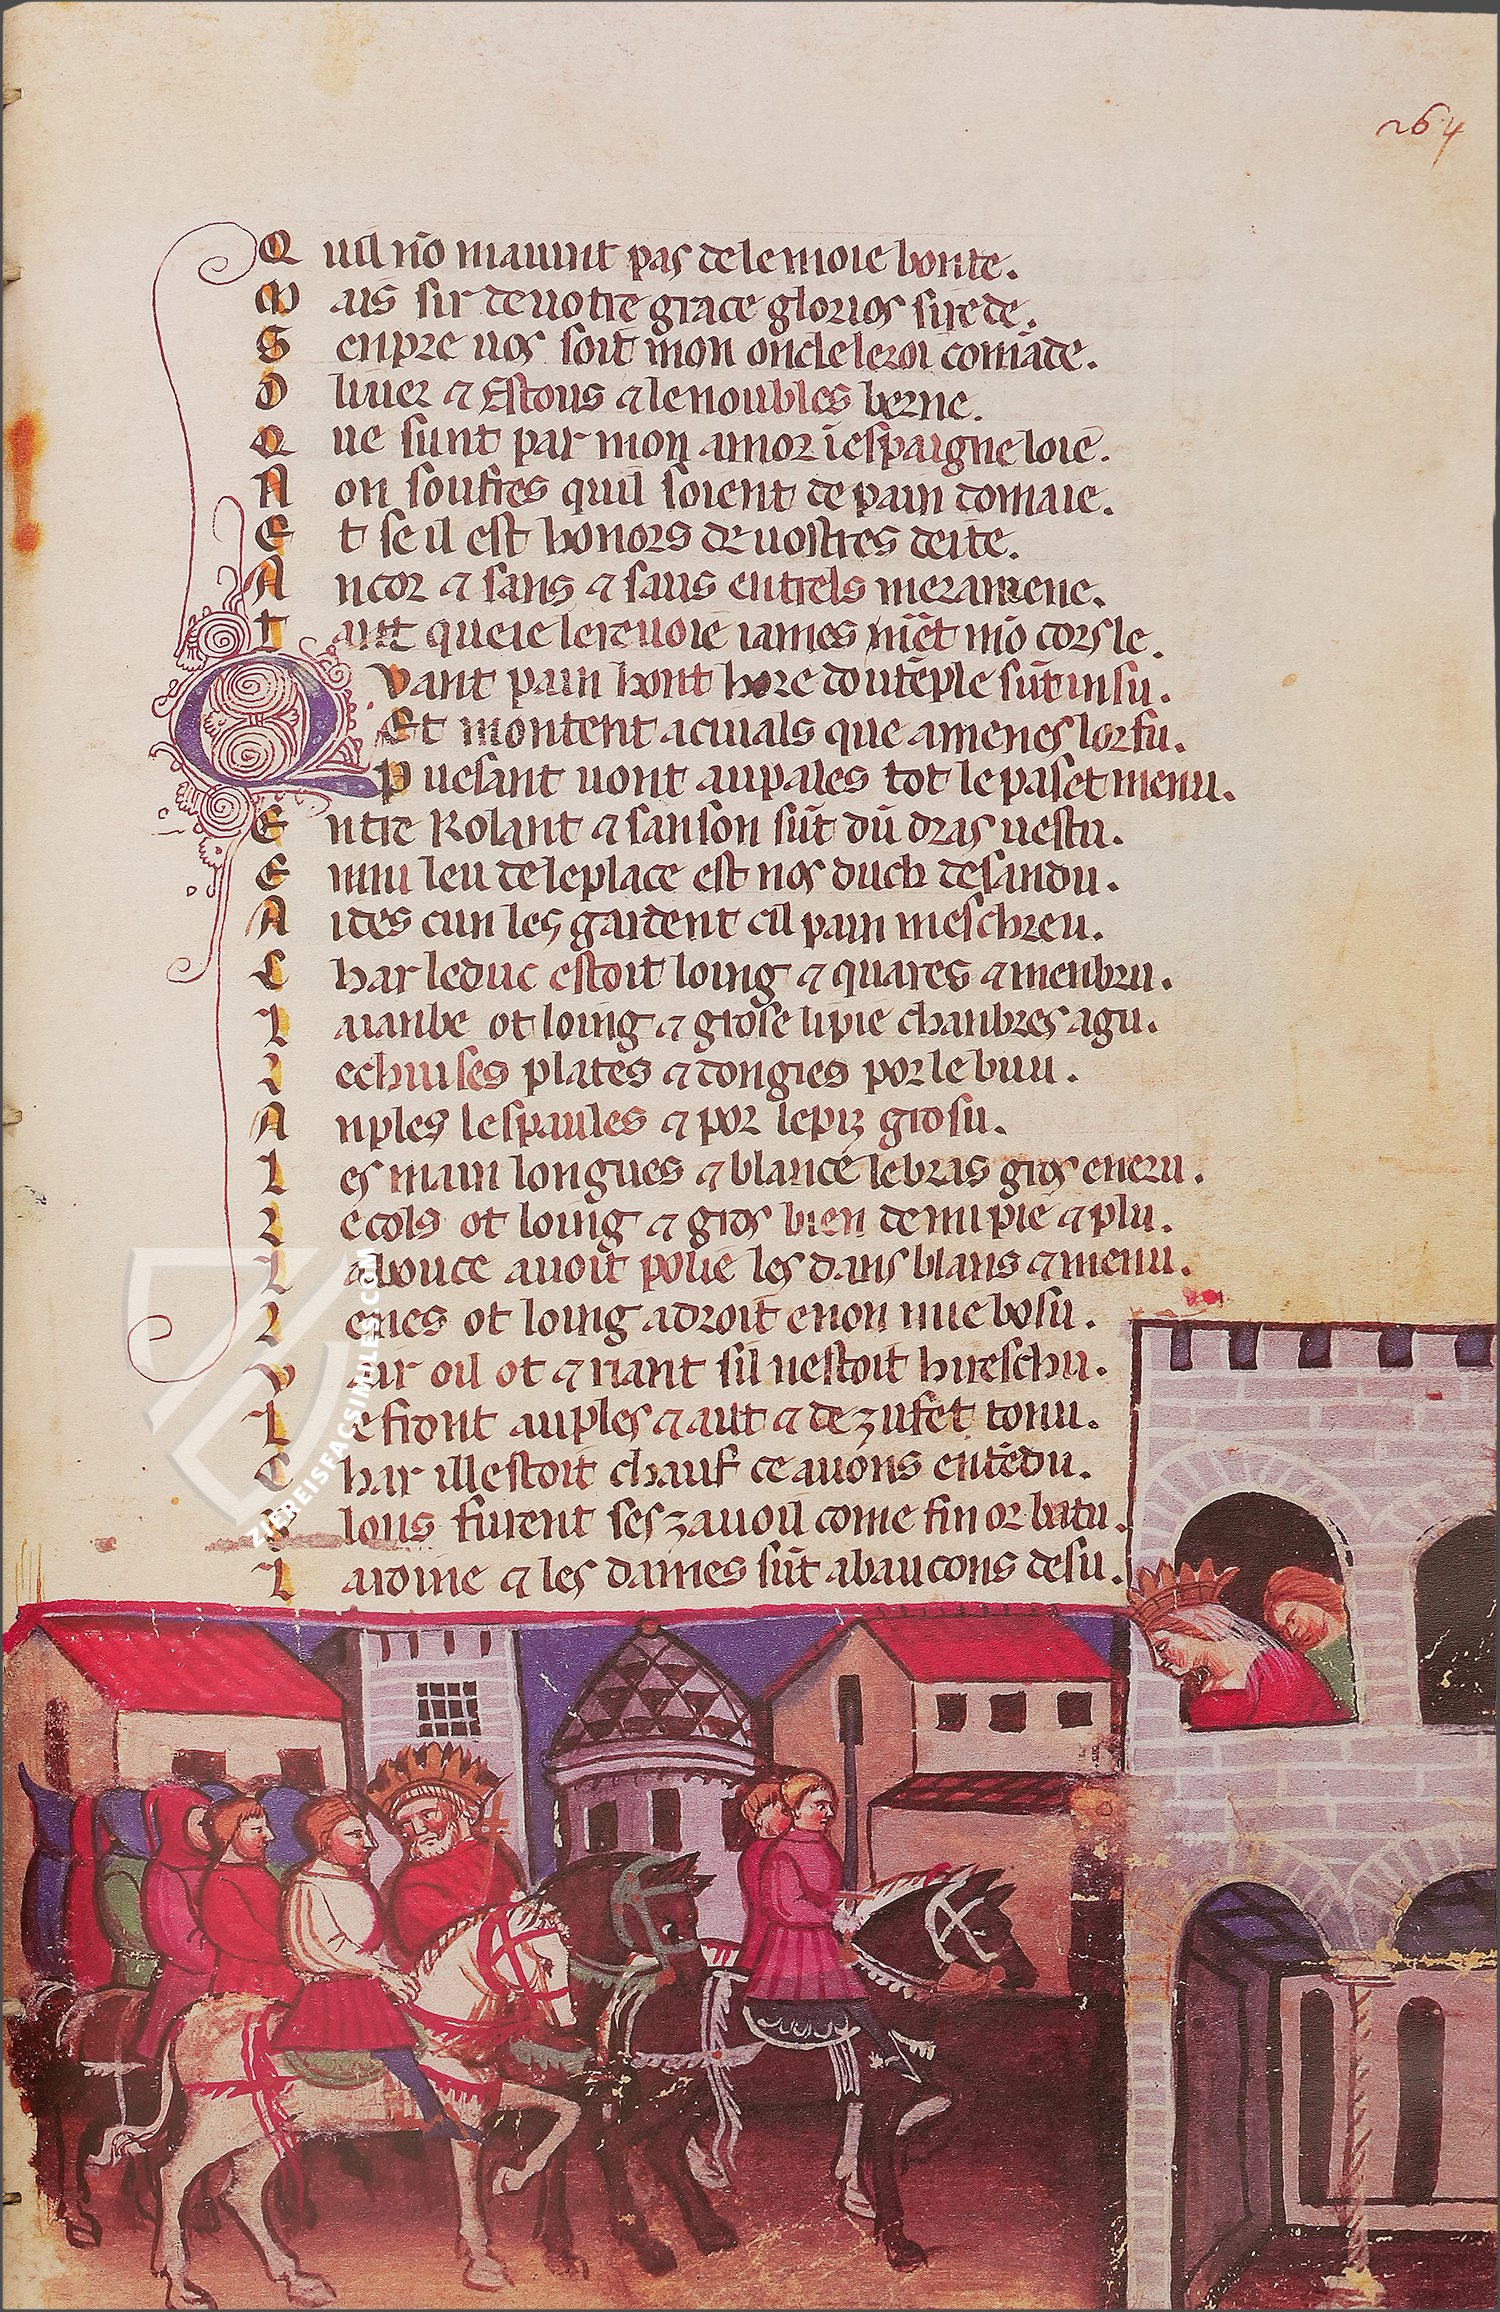 264
Q uil nō mauint pas de le moie bonte.
M ais sir de uotre grace glorios sire de.
S enpre uos soit mon oncle le roi comāde.
O liuer ⁊ Estous ⁊ le noubles berne.
Q ue sunt par mon amor ī espaigne loie.
N on soufres quil soient de pain domaie.
E t se il est honors de uostres deite.
A ncor ⁊ sans ⁊ saus entrels meramene.
T ant que ie le reuoie iames niēt mō cors le.
Q Vant pain hont hore dou tēple sūt insu.
Et montent a ciuals que amenes lor fu.
P uesant uont au pales tot le pas et menu.
E ntre Rolant ⁊ sanson sūt dū dras uestu.
E nmi leu de le place est nos duch desandu.
A ides cun les gardent cil pain meschreu.
C har le duc estoit loing ⁊ quares ⁊ menbru.
L a ianbe ot loing ⁊ grose li pie chanbres agu.
L e chuises plates ⁊ dongies por le buu.
A nples lespaules ⁊ por le piz grosu.
L es main longues ⁊ blance le bras gros eneru.
L e cols ot loing ⁊ gros bien demi pie ⁊ plu.
L a bouce auoit polie les dans blans ⁊ menu.
L e nes ot loing adroit e non mie bosu.
V air oil ot ⁊ riant sil uestoit hireschu.
L e front anples ⁊ aut ⁊ de zufet tonu.
C har ill estoit chauf ce auons entēdu.
lous furent ses zauoil come fin or batu.
L a roine ⁊ les dames sūt a baucons desu.
ZIEREISFACSIMILES.COM